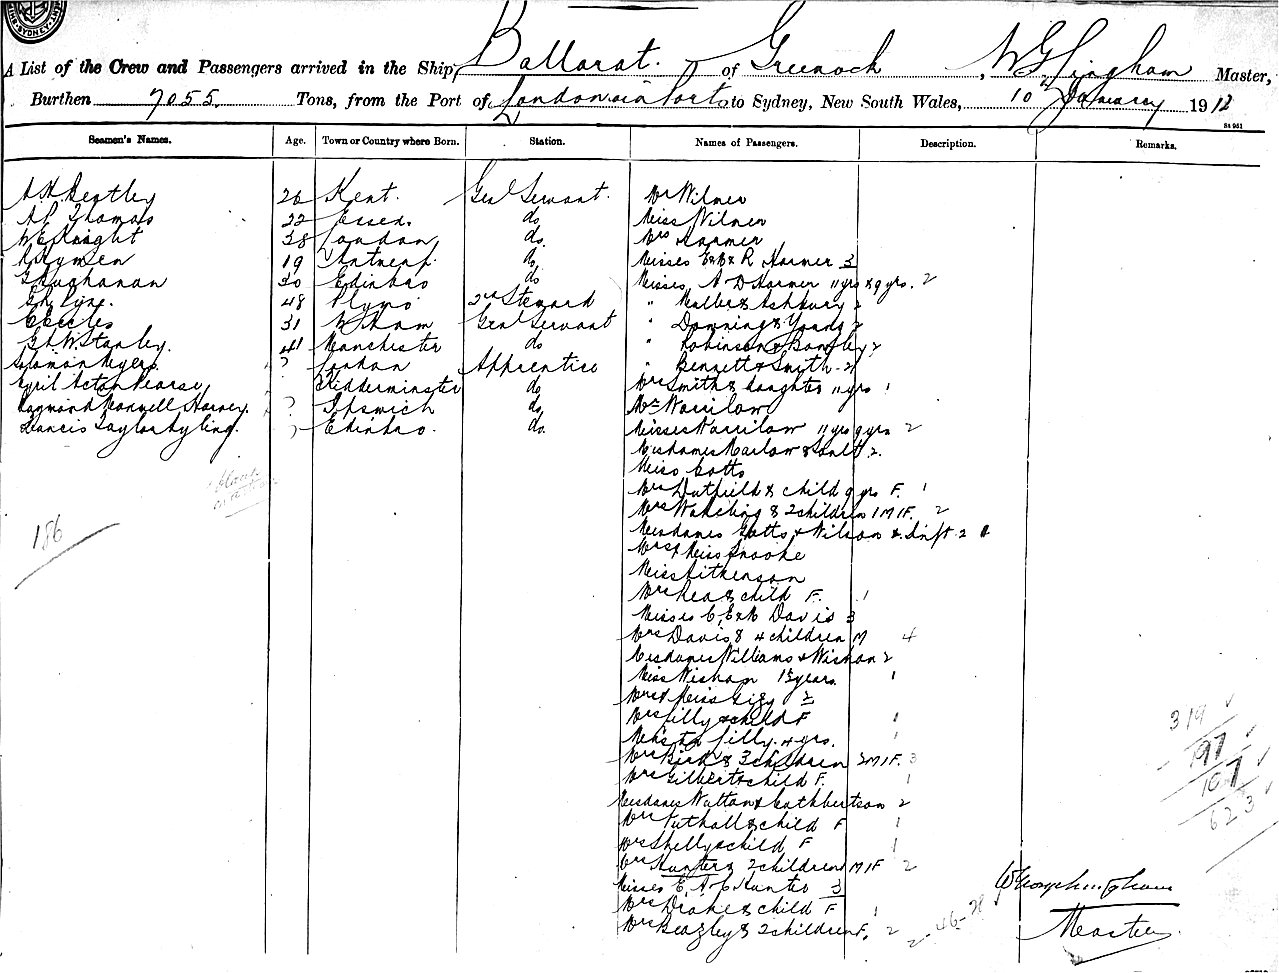 SYDNEY
A List of the Crew and Passengers arrived in the Ship, Ballarat. of Greenock, W G Lingham Master,
Burthen 7055 Tons, from the Port of London via Ports to Sydney, New South Wales, 10th January 1912
Seamen's Names. Age. Town or Country where Born. Station. Names of Passengers. Description. Remarks.
A H Bentley 26 Kent. Genl Servant. Mr Wilmer
Thomas 22 Essex. do Miss Wilmer
W E Knight 38 London do. Mrs Harmer
19 Antwerp. do Misses R Harmer 3
G Buchanan 30 Edinbro do Misses A D Harmer 11 yrs & 9 yrs. 2
48 Plymo 2nd Steward " & Ashbury 2
C Eccles 31 W Ham Genl Servant " Downing & Young 2
G. W. Stanley. 41 Manchester do " Robinson & 2
Solomon Meyers. ? London Apprentice " Bennett & Smith 2
Cyril Acton Pearse Kidderminster do Mrs Smith & daughter 11 yrs 1
Raymond Maxwell Harvey. ? Ipswich do Mrs Warrilow
Francis Taylor Ryling. ? Edinbro. do. Misses Warrilow 11 yrs 9 yrs 2
Mesdames Marlow & 2.
Miss Cotts
Mrs Dutfield & child 9 yrs F. 1
Mrs Wakeling & 2 children 1M 1F. 2
186
Mesdames Wilson & 2
Mrs & Miss Brooke
Miss Aitkenson
Mrs Rea & child F. 1
Misses C, E & M Davis 3
Mrs Davis & 4 children M 4
Mesdames Williams & Wishan 2
Miss Wishan 15 years. 1
Mrs & Miss 2
Mrs Lilly & child F 1
319
Lilly 4 yrs. 1
197
Mrs Bird & 3 children 2M 1F. 3
107
Mrs Gilbert & child F. 1
Mesdames Watton & Cuthbertson 2
623
Mrs Tuthall & child F 1
Mrs Shelly & child F 1
Mrs Hunter & 2 children M 1F 2
Misses E, A & C Hunter 3
Mrs Drake & child F 1
2-46-28
Master
Mrs Beazley & 2 children F. 2